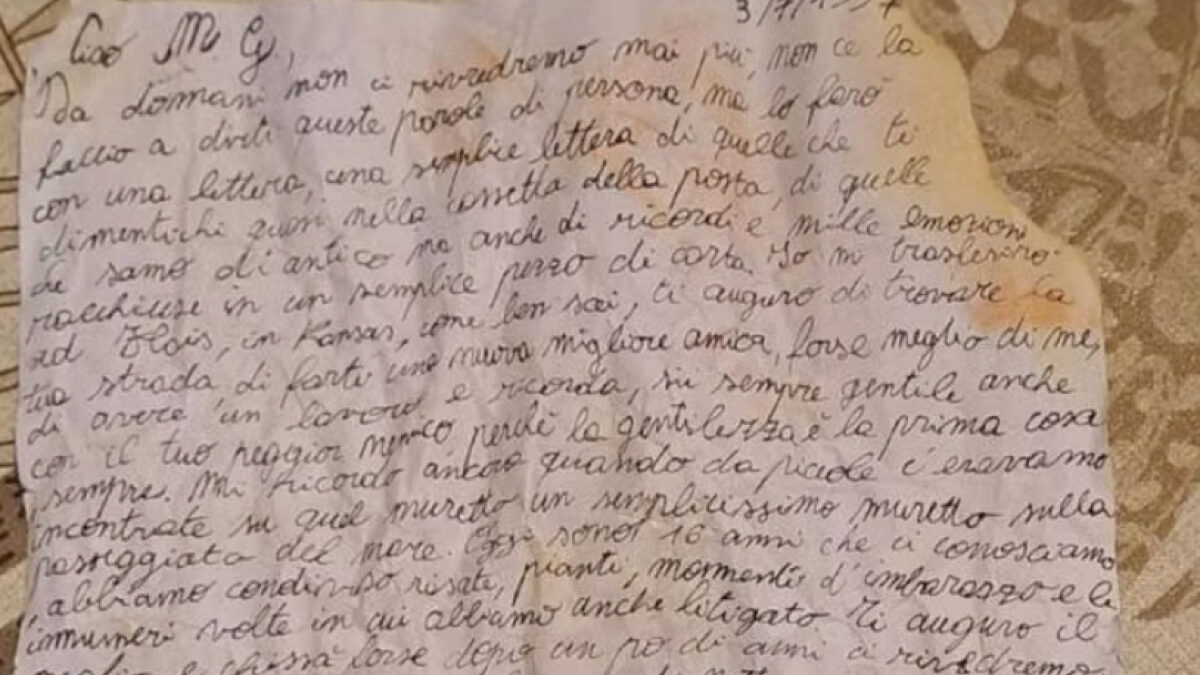 3/7/1997
Ciao M. G.,
Da domani non ci rivredremo mai più, non ce la
faccio a dirti queste parole di persona, ma lo farò
con una lettera, una semplice lettera di quelle che ti
dimentichi quasi nella cassetta della posta, di quelle
che sanno di antico ma anche di ricordi e mille emozioni
racchiuse in un semplice pezzo di carta. Io mi trasferirò
ad in Kansas, come ben sai, ti auguro di trovare la
tua strada, di farti una nuova migliore amica, forse meglio di me,
di avere un lavoro e ricorda, sii sempre gentile anche
con il tuo peggior nemico perchè la gentilezza è la prima cosa
sempre. Mi ricordo ancora quando da piccole c'eravamo
incontrate su quel muretto un semplicissimo muretto sulla
passeggiata del mare. Oggi sono 16 anni che ci conosciamo
abbiamo condiviso risate, pianti, momenti d'imbarazzo e le
innumeri volte in cui abbiamo anche litigato Ti auguro il
meglio e chissà forse dopo un po di anni ci rivedremo